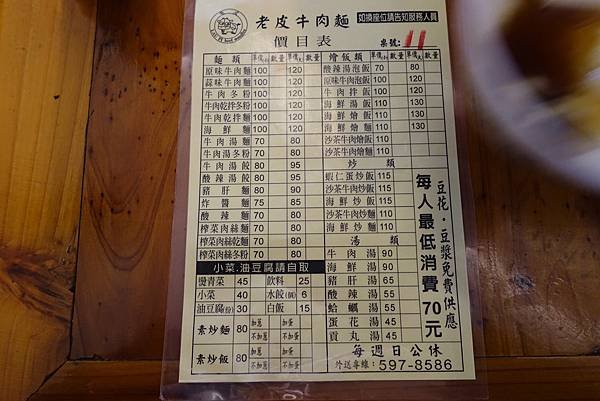 老皮牛肉麵
如換座位請告知服務人員
價目表
桌號: 11
麵類 單價(小) 數量 單價(大) 數量
原味牛肉麵 100 120
蒜味牛肉麵 100 120
牛肉冬粉 100 120
牛肉乾拌冬粉 100 120
牛肉乾拌麵 100 120
海鮮麵 100 120
牛肉湯麵 70 80
牛肉湯冬粉 70 80
牛肉湯餃 80 95
酸辣湯餃 80 95
豬肝麵 70 80
炸醬麵 75 85
酸辣麵 70 80
榨菜肉絲麵 70 80
榨菜肉絲乾麵 70 80
榨菜肉絲冬粉 70 80
小菜.油豆腐請自取
燙青菜 45 飲料 25
小菜 40 水餃(個) 6
油豆腐(份) 30 白飯 15
素炒麵 80 加蔥 不加蔥 加蛋 不加蛋
素炒飯 80 加蔥 不加蔥 加蛋 不加蛋
燴飯類 單價(小) 數量 單價(大) 數量
酸辣湯泡飯 70 80
原味牛肉泡飯 110 120
牛肉拌飯 110 120
海鮮湯飯 110 130
海鮮燴飯 110 130
海鮮燴麵 110 130
沙茶牛肉燴飯 110
沙茶牛肉燴麵 110
炒類
蝦仁蛋炒飯 115
沙茶牛肉炒飯 115
海鮮炒飯 115
沙茶牛肉炒麵 115
海鮮炒麵 115
湯類
牛肉湯 90
海鮮湯 90
豬肝湯 65
酸辣湯 55
蛤蠣湯 55
蛋花湯 45
貢丸湯 45
豆花.豆漿免費供應
每人最低消費70元
每週日公休
外送專線: 597-8586